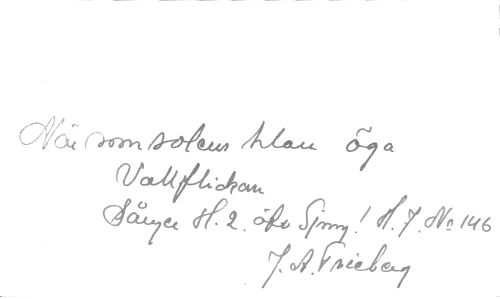 När som solens klara öga
Vallflickan
Sånger H. 2. öfv Sjung! H. J. No 146
J. A. Frieberg